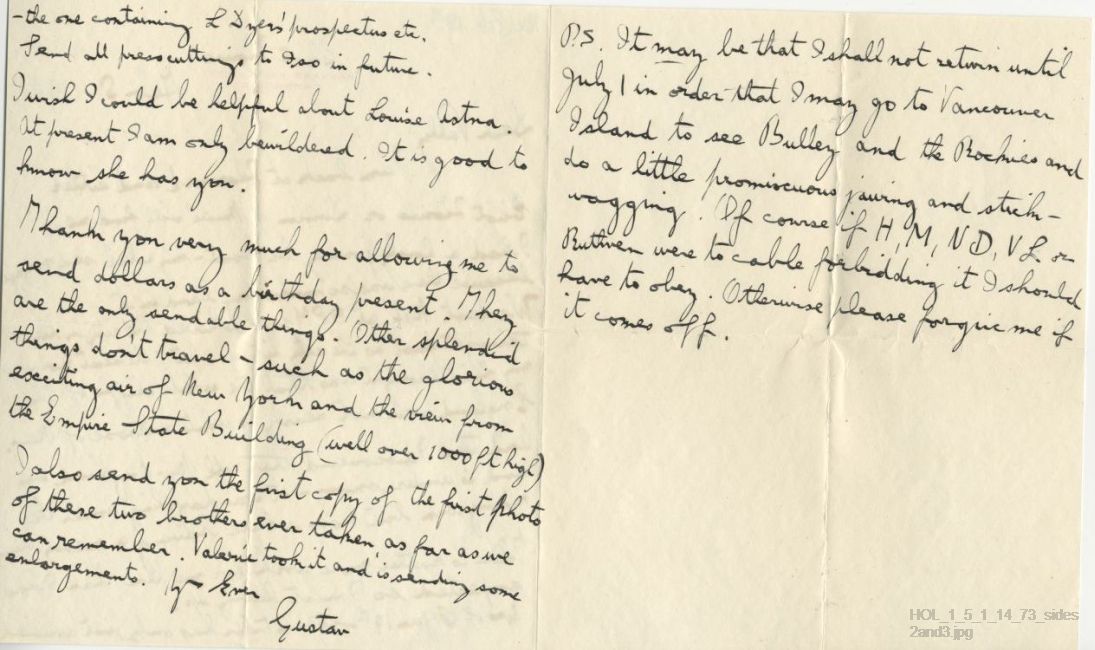 - the one containing L Dyers' prospectus etc.
Send all presscuttings to Iso in future.
I wish I could be helpful about Louise Astra.
At present I am only bewildered. It is good to
know she has you.
Thank you very much for allowing me to
send dollars as a birthday present. They
are the only sendable things. Other splendid
things don't travel - such as the glorious
exciting air of New York and the view from
the Empire State Building (well over 1000 ft high)
I also send you the first copy of the first photo
of these two brothers ever taken, as far as we
can remember. Valerie took it and is sending some
enlargements. Yrs Ever
Gustav
P.S. It may be that I shall not return until
July 1 in order that I may go to Vancouver
Island to see Bulley and the Rockies and
do a little promiscuous jawing and stick-
wagging. Of course if H, M, ND, VL or
Ruthven were to cable forbidding it I should
have to obey. Otherwise please forgive me if
it comes off.
HOL_1_5_1_14_73_sides
2and3.jpg